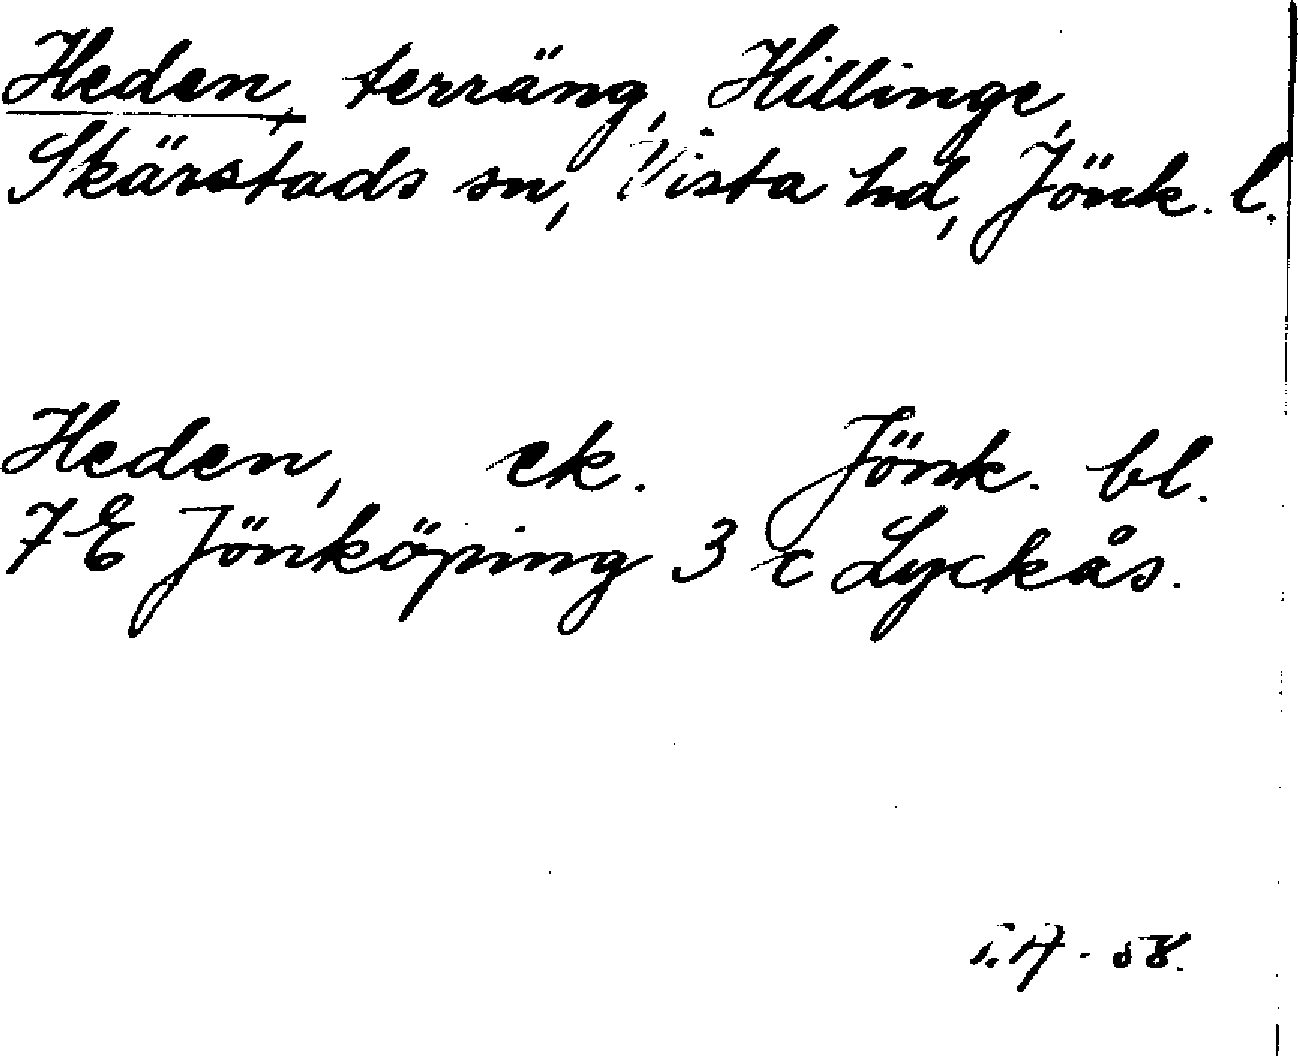 Heden, terräng, Hillinge,
Skärstads sn, Vista hd, Jönk. l.
Heden, ek. Jönk. bl.
7 E Jönköping 3 c Lyckås.
58.